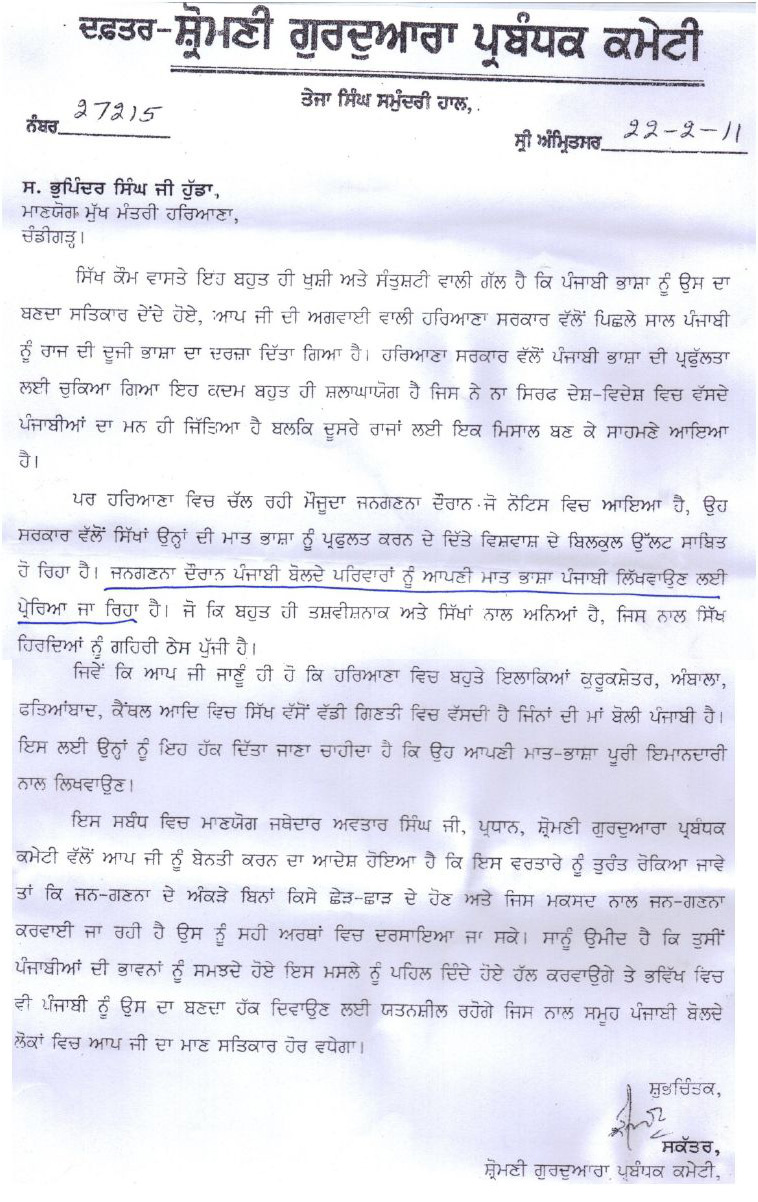 ਦਫ਼ਤਰ-ਸ਼੍ਰੋਮਣੀ ਗੁਰਦੁਆਰਾ ਪ੍ਰਬੰਧਕ ਕਮੇਟੀ
ਤੇਜਾ ਸਿੰਘ ਸਮੁੰਦਰੀ ਹਾਲ,
ਨੰਬਰ 27215
ਸ੍ਰੀ ਅੰਮ੍ਰਿਤਸਰ 22-2-11
ਸ. ਭੁਪਿੰਦਰ ਸਿੰਘ ਜੀ ਹੁੱਡਾ,
ਮਾਣਯੋਗ ਮੁੱਖ ਮੰਤਰੀ ਹਰਿਆਣਾ,
ਚੰਡੀਗੜ੍ਹ।
ਸਿੱਖ ਕੌਮ ਵਾਸਤੇ ਇਹ ਬਹੁਤ ਹੀ ਖੁਸ਼ੀ ਅਤੇ ਸੰਤੁਸ਼ਟੀ ਵਾਲੀ ਗੱਲ ਹੈ ਕਿ ਪੰਜਾਬੀ ਭਾਸ਼ਾ ਨੂੰ ਉਸ ਦਾ
ਬਣਦਾ ਸਤਿਕਾਰ ਦੇਂਦੇ ਹੋਏ, ਆਪ ਜੀ ਦੀ ਅਗਵਾਈ ਵਾਲੀ ਹਰਿਆਣਾ ਸਰਕਾਰ ਵੱਲੋਂ ਪਿਛਲੇ ਸਾਲ ਪੰਜਾਬੀ
ਨੂੰ ਰਾਜ ਦੀ ਦੂਜੀ ਭਾਸ਼ਾ ਦਾ ਦਰਜ਼ਾ ਦਿੱਤਾ ਗਿਆ ਹੈ। ਹਰਿਆਣਾ ਸਰਕਾਰ ਵੱਲੋਂ ਪੰਜਾਬੀ ਭਾਸ਼ਾ ਦੀ ਪ੍ਰਫੁੱਲਤਾ
ਲਈ ਚੁਕਿਆ ਗਿਆ ਇਹ ਕਦਮ ਬਹੁਤ ਹੀ ਸ਼ਲਾਘਾਯੋਗ ਹੈ ਜਿਸ ਨੇ ਨਾ ਸਿਰਫ ਦੇਸ਼-ਵਿਦੇਸ਼ ਵਿਚ ਵੱਸਦੇ
ਪੰਜਾਬੀਆਂ ਦਾ ਮਨ ਹੀ ਜਿੱਤਿਆ ਹੈ ਬਲਕਿ ਦੂਸਰੇ ਰਾਜਾਂ ਲਈ ਇਕ ਮਿਸਾਲ ਬਣ ਕੇ ਸਾਹਮਣੇ ਆਇਆ
ਹੈ।
ਪਰ ਹਰਿਆਣਾ ਵਿਚ ਚੱਲ ਰਹੀ ਮੌਜੂਦਾ ਜਨਗਣਨਾ ਦੌਰਾਨ ਜੋ ਨੋਟਿਸ ਵਿਚ ਆਇਆ ਹੈ, ਉਹ
ਸਰਕਾਰ ਵੱਲੋਂ ਸਿੱਖਾਂ ਉਨ੍ਹਾਂ ਦੀ ਮਾਤ ਭਾਸ਼ਾ ਨੂੰ ਪ੍ਰਫੁਲਤ ਕਰਨ ਦੇ ਦਿੱਤੇ ਵਿਸ਼ਵਾਸ਼ ਦੇ ਬਿਲਕੁਲ ਉੱਲਟ ਸਾਬਿਤ
ਹੋ ਰਿਹਾ ਹੈ। ਜਨਗਣਨਾ ਦੌਰਾਨ ਪੰਜਾਬੀ ਬੋਲਦੇ ਪਰਿਵਾਰਾਂ ਨੂੰ ਆਪਣੀ ਮਾਤ ਭਾਸ਼ਾ ਪੰਜਾਬੀ ਲਿੱਖਵਾਉਣ ਲਈ
ਪ੍ਰੇਰਿਆ ਜਾ ਰਿਹਾ ਹੈ। ਜੋ ਕਿ ਬਹੁਤ ਹੀ ਤਸ਼ਵੀਸ਼ਨਾਕ ਅਤੇ ਸਿੱਖਾਂ ਨਾਲ ਅਨਿਆਂ ਹੈ, ਜਿਸ ਨਾਲ ਸਿੱਖ
ਹਿਰਦਿਆਂ ਨੂੰ ਗਹਿਰੀ ਠੇਸ ਪੁੱਜੀ ਹੈ।
ਜਿਵੇਂ ਕਿ ਆਪ ਜੀ ਜਾਣੂੰ ਹੀ ਹੋ ਕਿ ਹਰਿਆਣਾ ਵਿਚ ਬਹੁਤੇ ਇਲਾਕਿਆਂ ਕੁਰੂਕਸ਼ੇਤਰ, ਅੰਬਾਲਾ,
ਫਤਿਆਂਬਾਦ, ਕੈਂਥਲ ਆਦਿ ਵਿਚ ਸਿੱਖ ਵੱਸੋਂ ਵੱਡੀ ਗਿਣਤੀ ਵਿਚ ਵੱਸਦੀ ਹੈ ਜਿੰਨਾਂ ਦੀ ਮਾਂ ਬੋਲੀ ਪੰਜਾਬੀ ਹੈ।
ਇਸ ਲਈ ਉਨ੍ਹਾਂ ਨੂੰ ਇਹ ਹੱਕ ਦਿੱਤਾ ਜਾਣਾ ਚਾਹੀਦਾ ਹੈ ਕਿ ਉਹ ਆਪਣੀ ਮਾਤ-ਭਾਸ਼ਾ ਪੂਰੀ ਇਮਾਨਦਾਰੀ
ਨਾਲ ਲਿਖਵਾਉਣ।
ਇਸ ਸਬੰਧ ਵਿਚ ਮਾਣਯੋਗ ਜਥੇਦਾਰ ਅਵਤਾਰ ਸਿੰਘ ਜੀ, ਪ੍ਰਧਾਨ, ਸ਼੍ਰੋਮਣੀ ਗੁਰਦੁਆਰਾ ਪ੍ਰਬੰਧਕ
ਕਮੇਟੀ ਵੱਲੋਂ ਆਪ ਜੀ ਨੂੰ ਬੇਨਤੀ ਕਰਨ ਦਾ ਆਦੇਸ਼ ਹੋਇਆ ਹੈ ਕਿ ਇਸ ਵਰਤਾਰੇ ਨੂੰ ਤੁਰੰਤ ਰੋਕਿਆ ਜਾਵੇ
ਤਾਂ ਕਿ ਜਨ-ਗਣਨਾ ਦੇ ਅੰਕੜੇ ਬਿਨਾਂ ਕਿਸੇ ਛੇੜ-ਛਾੜ ਦੇ ਹੋਣ ਅਤੇ ਜਿਸ ਮਕਸਦ ਨਾਲ ਜਨ-ਗਣਨਾ
ਕਰਵਾਈ ਜਾ ਰਹੀ ਹੈ ਉਸ ਨੂੰ ਸਹੀ ਅਰਥਾਂ ਵਿਚ ਦਰਸਾਇਆ ਜਾ ਸਕੇ। ਸਾਨੂੰ ਉਮੀਦ ਹੈ ਕਿ ਤੁਸੀਂ
ਪੰਜਾਬੀਆਂ ਦੀ ਭਾਵਨਾਂ ਨੂੰ ਸਮਝਦੇ ਹੋਏ ਇਸ ਮਸਲੇ ਨੂੰ ਪਹਿਲ ਦਿੰਦੇ ਹੋਏ ਹੱਲ ਕਰਵਾਉਗੇ ਤੇ ਭਵਿੱਖ ਵਿਚ
ਵੀ ਪੰਜਾਬੀ ਨੂੰ ਉਸ ਦਾ ਬਣਦਾ ਹੱਕ ਦਿਵਾਉਣ ਲਈ ਯਤਨਸ਼ੀਲ ਰਹੋਗੇ ਜਿਸ ਨਾਲ ਸਮੂਹ ਪੰਜਾਬੀ ਬੋਲਦੇ
ਲੋਕਾਂ ਵਿਚ ਆਪ ਜੀ ਦਾ ਮਾਣ ਸਤਿਕਾਰ ਹੋਰ ਵਧੇਗਾ।
ਸ਼ੁਭਚਿੰਤਕ,
ਸਕੱਤਰ,
ਸ਼੍ਰੋਮਣੀ ਗੁਰਦੁਆਰਾ ਪ੍ਰਬੰਧਕ ਕਮੇਟੀ,